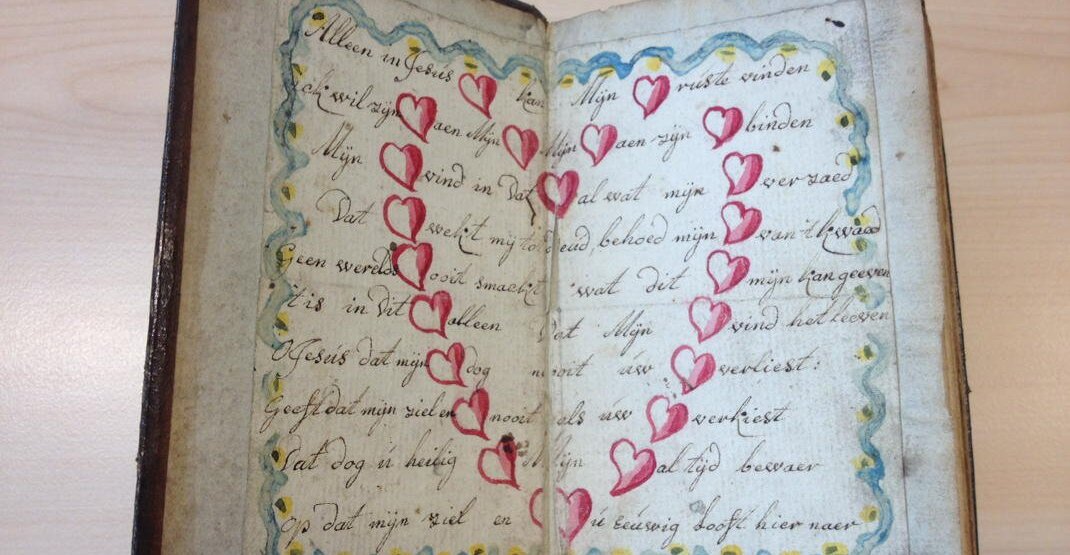 Alleen in Jesús kan Mijn ruste vinden
ok wil zijn aen Mijn Mijn aen zijn binden
Mijn vind in dat al wat mijn verzaed
Dat wekt mij tot deud, behoed mijn van 't kwaad
Geen werelds ooit smaekt wat dit mijn kan geeven
't is in dit alleen Dat Mijn vind het leeven
O Jesús dat mijn dog nooit úw verliest:
Geeft dat mijn ziel en nooit als úw verkiest
Dat dog ú heilig Mijn altijd bewaer
op dat mijn ziel en ú eeúwig looft hier naer